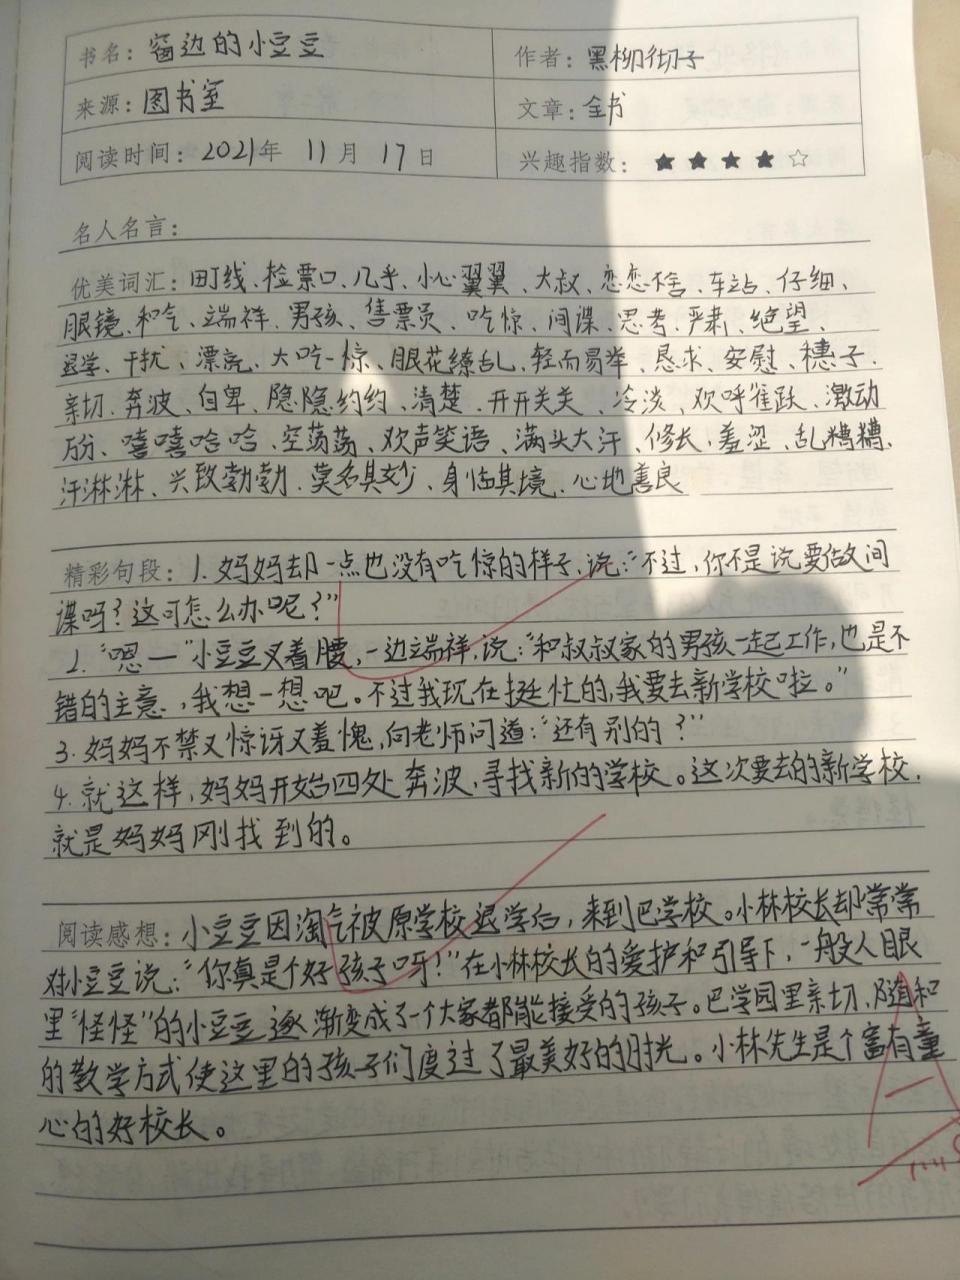 书名：窗边的小豆豆 作者：黑柳彻子
来源：图书室 文章：全书
阅读时间：2021年 11月 17日 兴趣指数：★★★★☆
名人名言：
优美词汇：町线、检票口、几乎、小心翼翼、大叔、恋恋不舍、车站、仔细、
眼镜、和气、端祥、男孩、售票员、吃惊、间谍、思考、严肃、绝望、
退学、干扰、漂亮、大吃一惊、眼花缭乱、轻而易举、恳求、安慰、穗子、
亲切、奔波、自卑、隐隐约约、清楚、开开关关、冷淡、欢呼雀跃、激动
万分、嘻嘻哈哈、空荡荡、欢声笑语、满头大汗、修长、羞涩、乱糟糟、
汗淋淋、兴致勃勃、莫名其妙、身临其境、心地善良
精彩句段：1.妈妈却一点也没有吃惊的样子，说：“不过，你不是说要做间
谍吗？这可怎么办呢？”
2.“嗯一”小豆豆叉着腰，一边端祥，说：“和叔叔家的男孩一起工作，也是不
错的主意，我想一想吧。不过我现在挺忙的，我要去新学校啦。”
3.妈妈不禁又惊讶又羞愧，向老师问道：“还有别的？”
4.就这样，妈妈开始四处奔波，寻找新的学校。这次要去的新学校，
就是妈妈刚找到的。
阅读感想：小豆豆因淘气被原学校退学后，来到巴学校。小林校长却常常
对小豆豆说：“你真是个好孩子呀！”在小林校长的爱护和引导下，一般人眼
里“怪怪”的小豆豆逐渐变成了一个大家都能接受的孩子。巴学园里亲切、随和
的教学方式使这里的孩子们度过了最美好的时光。小林先生是个富有童
心的好校长。